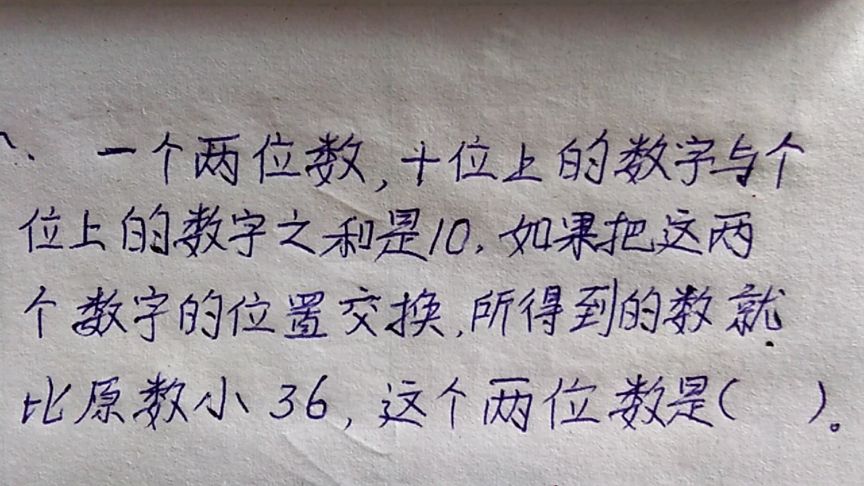 一个两位数,十位上的数字与个
位上的数字之和是10,如果把这两
个数字的位置交换,所得到的数就
比原数小36,这个两位数是( )。